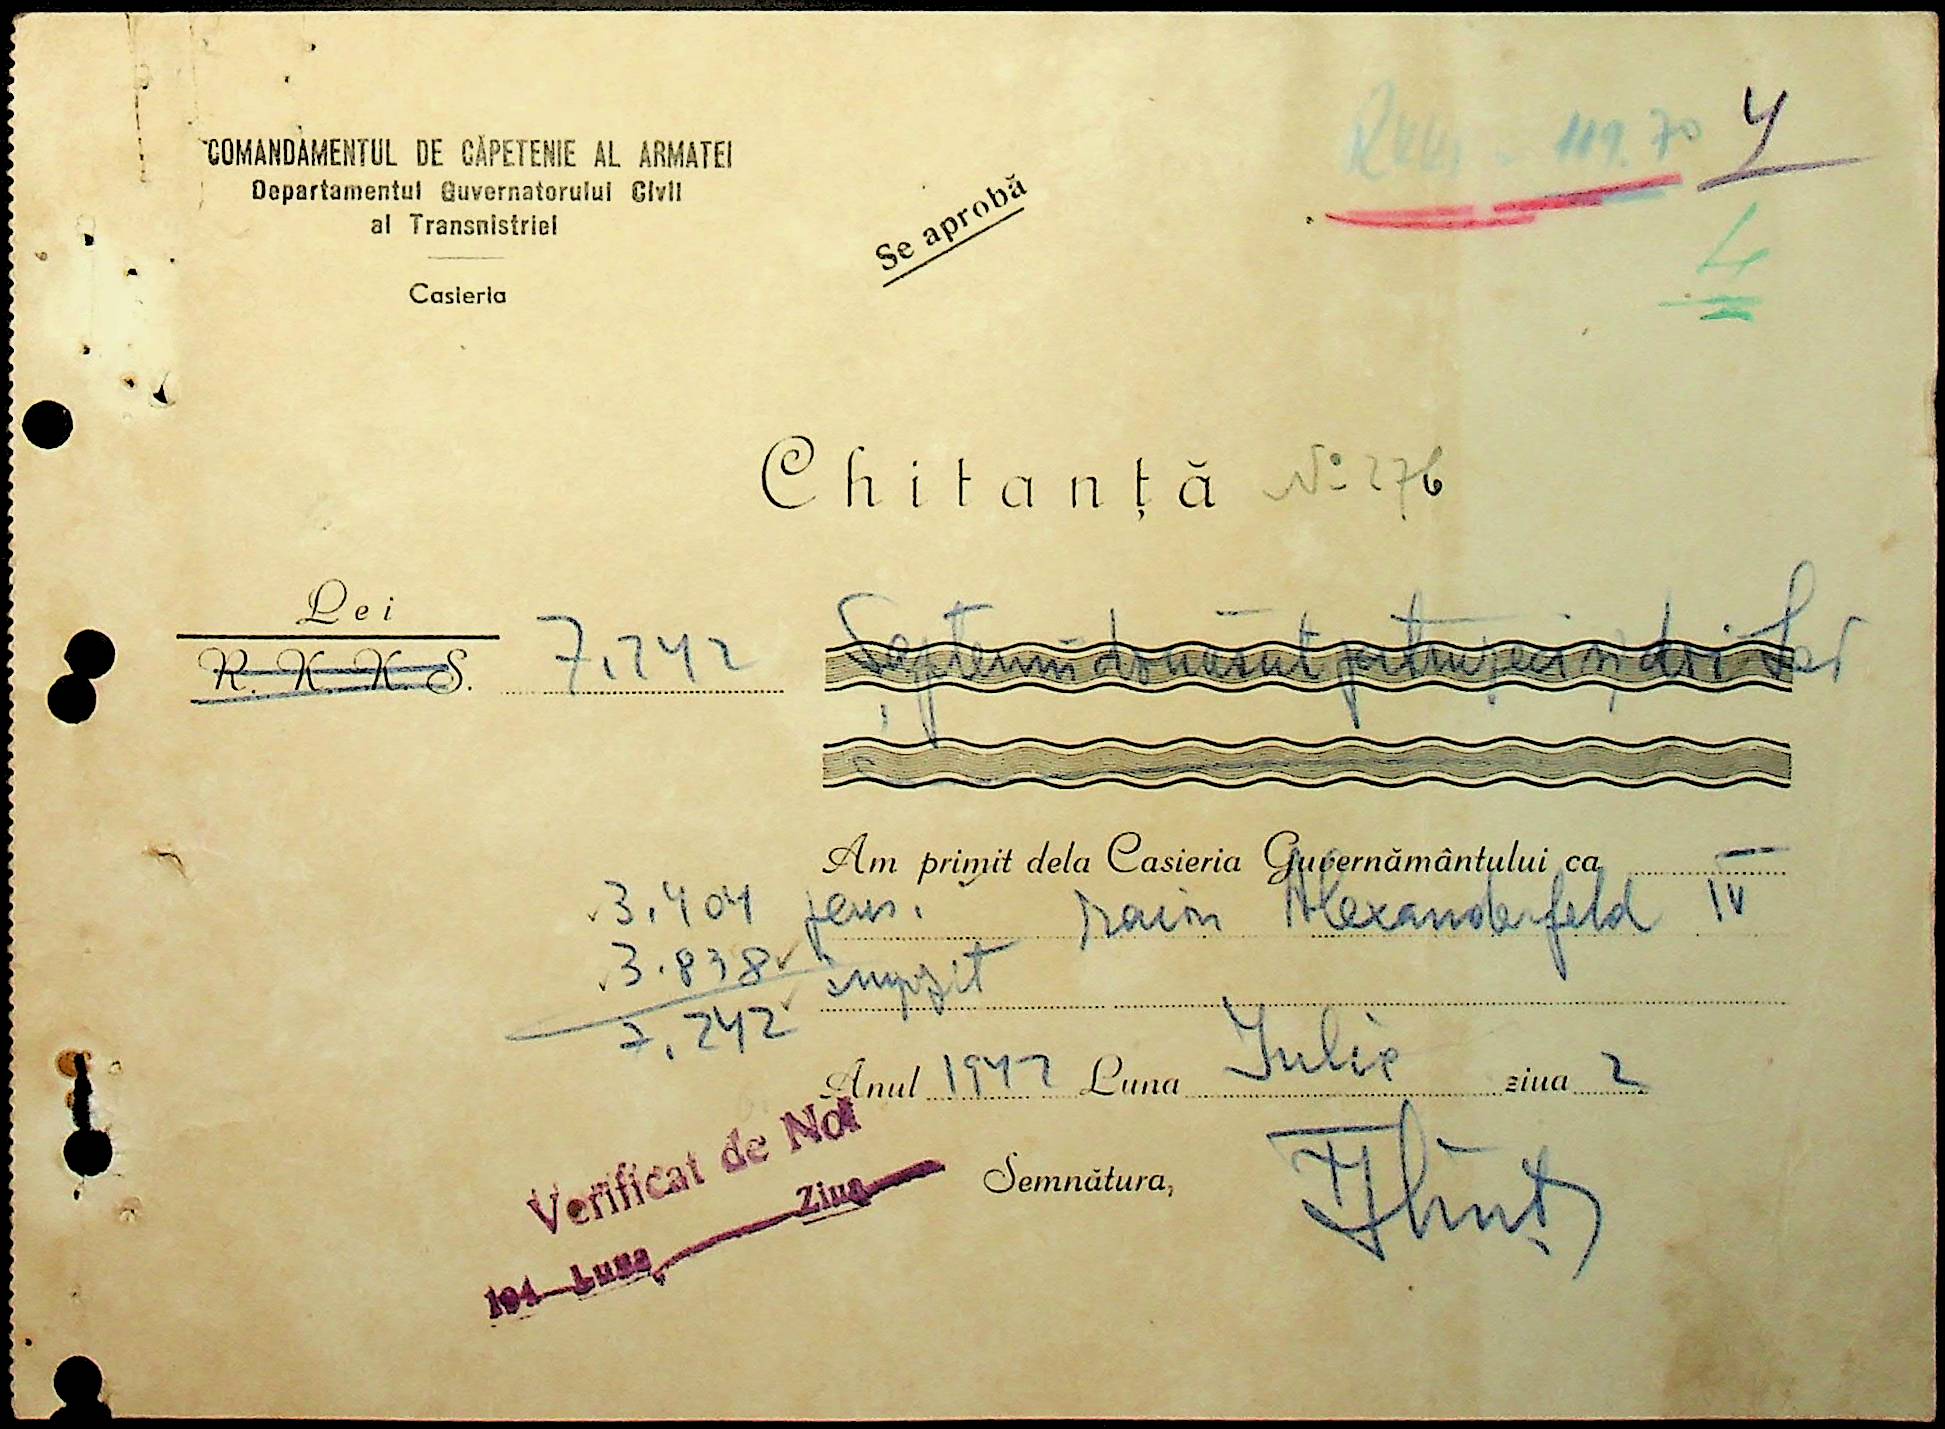 COMANDAMENTUL DE CĂPETENIE AL ARMATEI
Departamentul Guvernatorului Civil
al Transnistriei
Casieria
Se aprobă
119.70
4
4
Chitanță No 276
Lei
R. K. K. S. 7.242 Șaptemii douăsute patruzeci și doi Lei
Am primit dela Casieria Guvernământului ca
3.404 raion Alexanderfeld IV
3.838 impozit
7.242
Anul 1942 Luna Iulie ziua 2
Verificat de Noi
194 Luna Ziua
Semnătura,